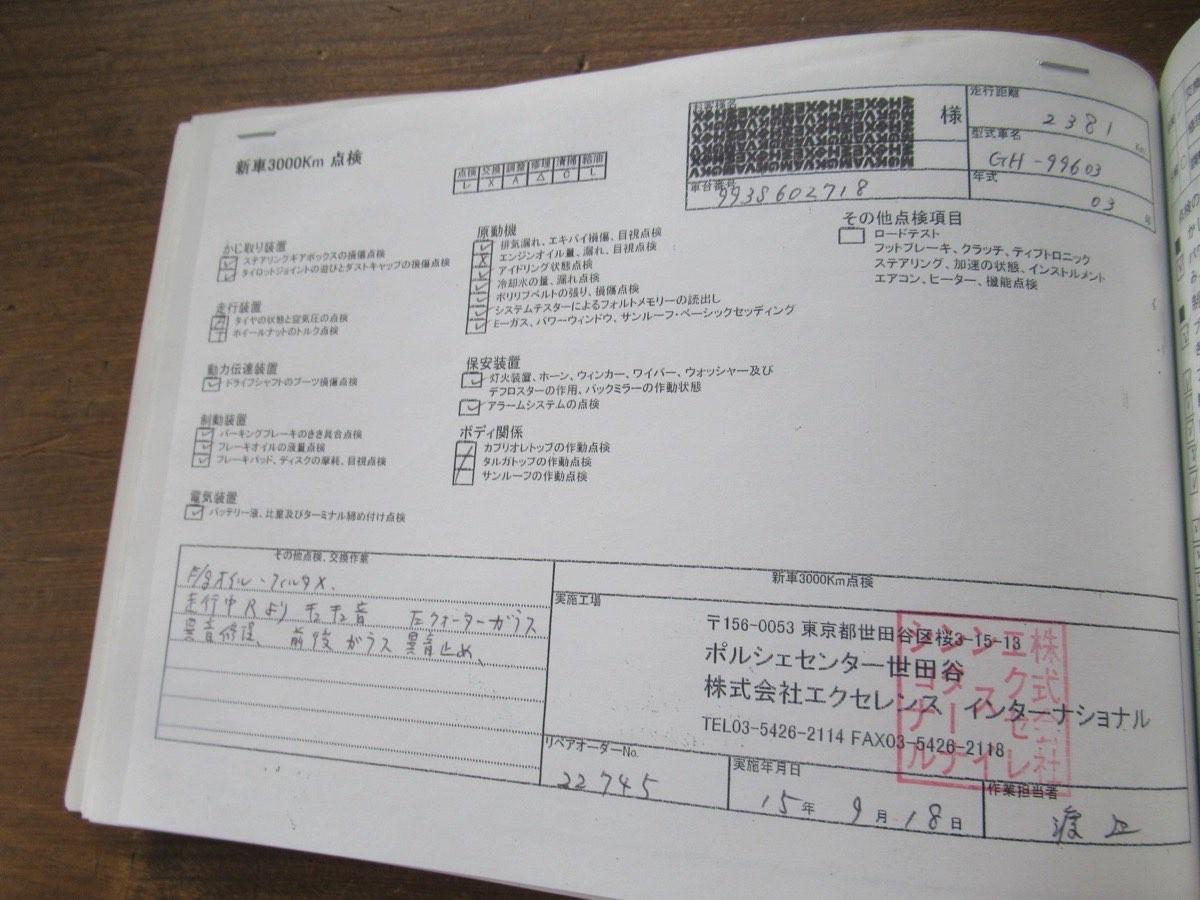 新車3000Km 点検
点検 交換 調整 修理 清掃 給油
レ X A △ C L
お客様名
様
走行距離
2381 Km
型式車名
GH-99603
車台番号
993S602718
年式
03
かじ取り装置
ステアリングギアボックスの損傷点検
タイロットジョイントの遊びとダストキャップの損傷点検
走行装置
タイヤの状態と空気圧の点検
ホイールナットのトルク点検
動力伝達装置
ドライブシャフトのブーツ損傷点検
制動装置
パーキングブレーキのきき具合点検
ブレーキオイルの液量点検
ブレーキパッド、ディスクの摩耗、目視点検
電気装置
バッテリー液、比重及びターミナル締め付け点検
原動機
排気漏れ、エキパイ損傷、目視点検
エンジンオイル量、漏れ、目視点検
アイドリング状態点検
冷却水の量、漏れ点検
ポリリブベルトの張り、損傷点検
システムテスターによるフォルトメモリーの読出し
E-ガス、パワーウィンドウ、サンルーフ・ベーシックセッディング
保安装置
灯火装置、ホーン、ウィンカー、ワイパー、ウォッシャー及び
デフロスターの作用、バックミラーの作動状態
アラームシステムの点検
ボディ関係
カブリオレトップの作動点検
タルガトップの作動点検
サンルーフの作動点検
その他点検項目
ロードテスト
フットブレーキ、クラッチ、ティプトロニック
ステアリング、加速の状態、インストルメント
エアコン、ヒーター、機能点検
その他点検、交換作業
オイル・フィルタX.
走行中Rより チュチュ音 左クォーターガラス
異音修理、前後ガラス 異音止め、
新車3000Km点検
実施工場
〒156-0053 東京都世田谷区桜3-15-13
ポルシェセンター世田谷
株式会社エクセレンス インターナショナル
TEL03-5426-2114 FAX03-5426-2118
リペアオーダーNo.
22745
実施年月日
15年 9月 18日
作業担当者
渡辺